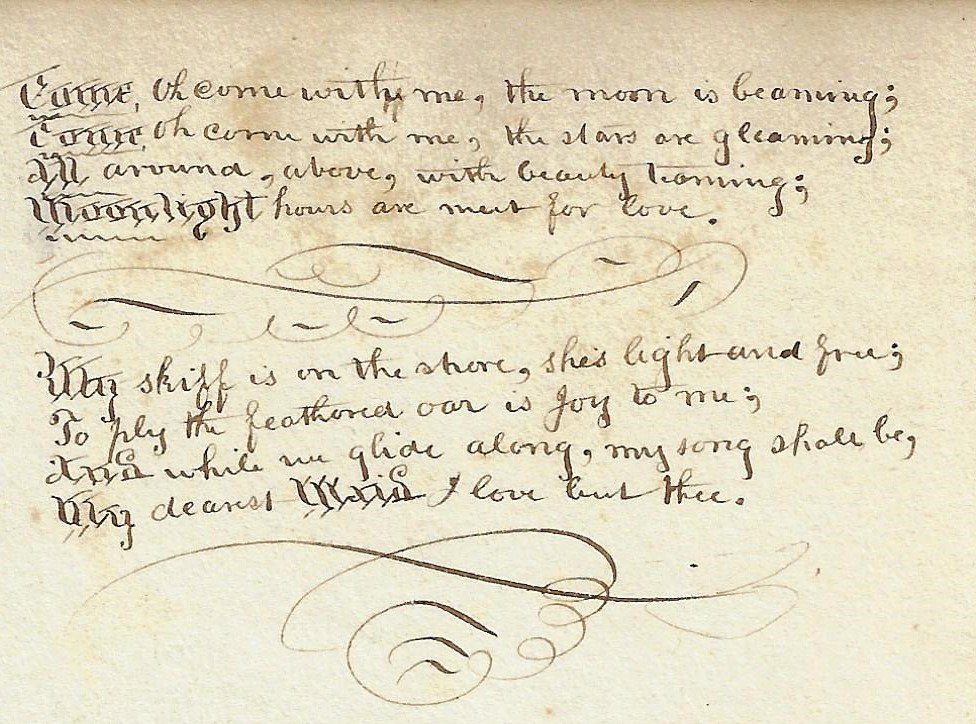 Come, Oh come with me, the moon is beaming;
Come, Oh come with me, the stars are gleaming;
All around, above, with beauty teaming;
Moonlight hours are meet for love.
My skiff is on the shore, she's light and free;
To ply the feathered oar is Joy to me;
And while we glide along, my song shall be,
My dearest Maid I love but thee.